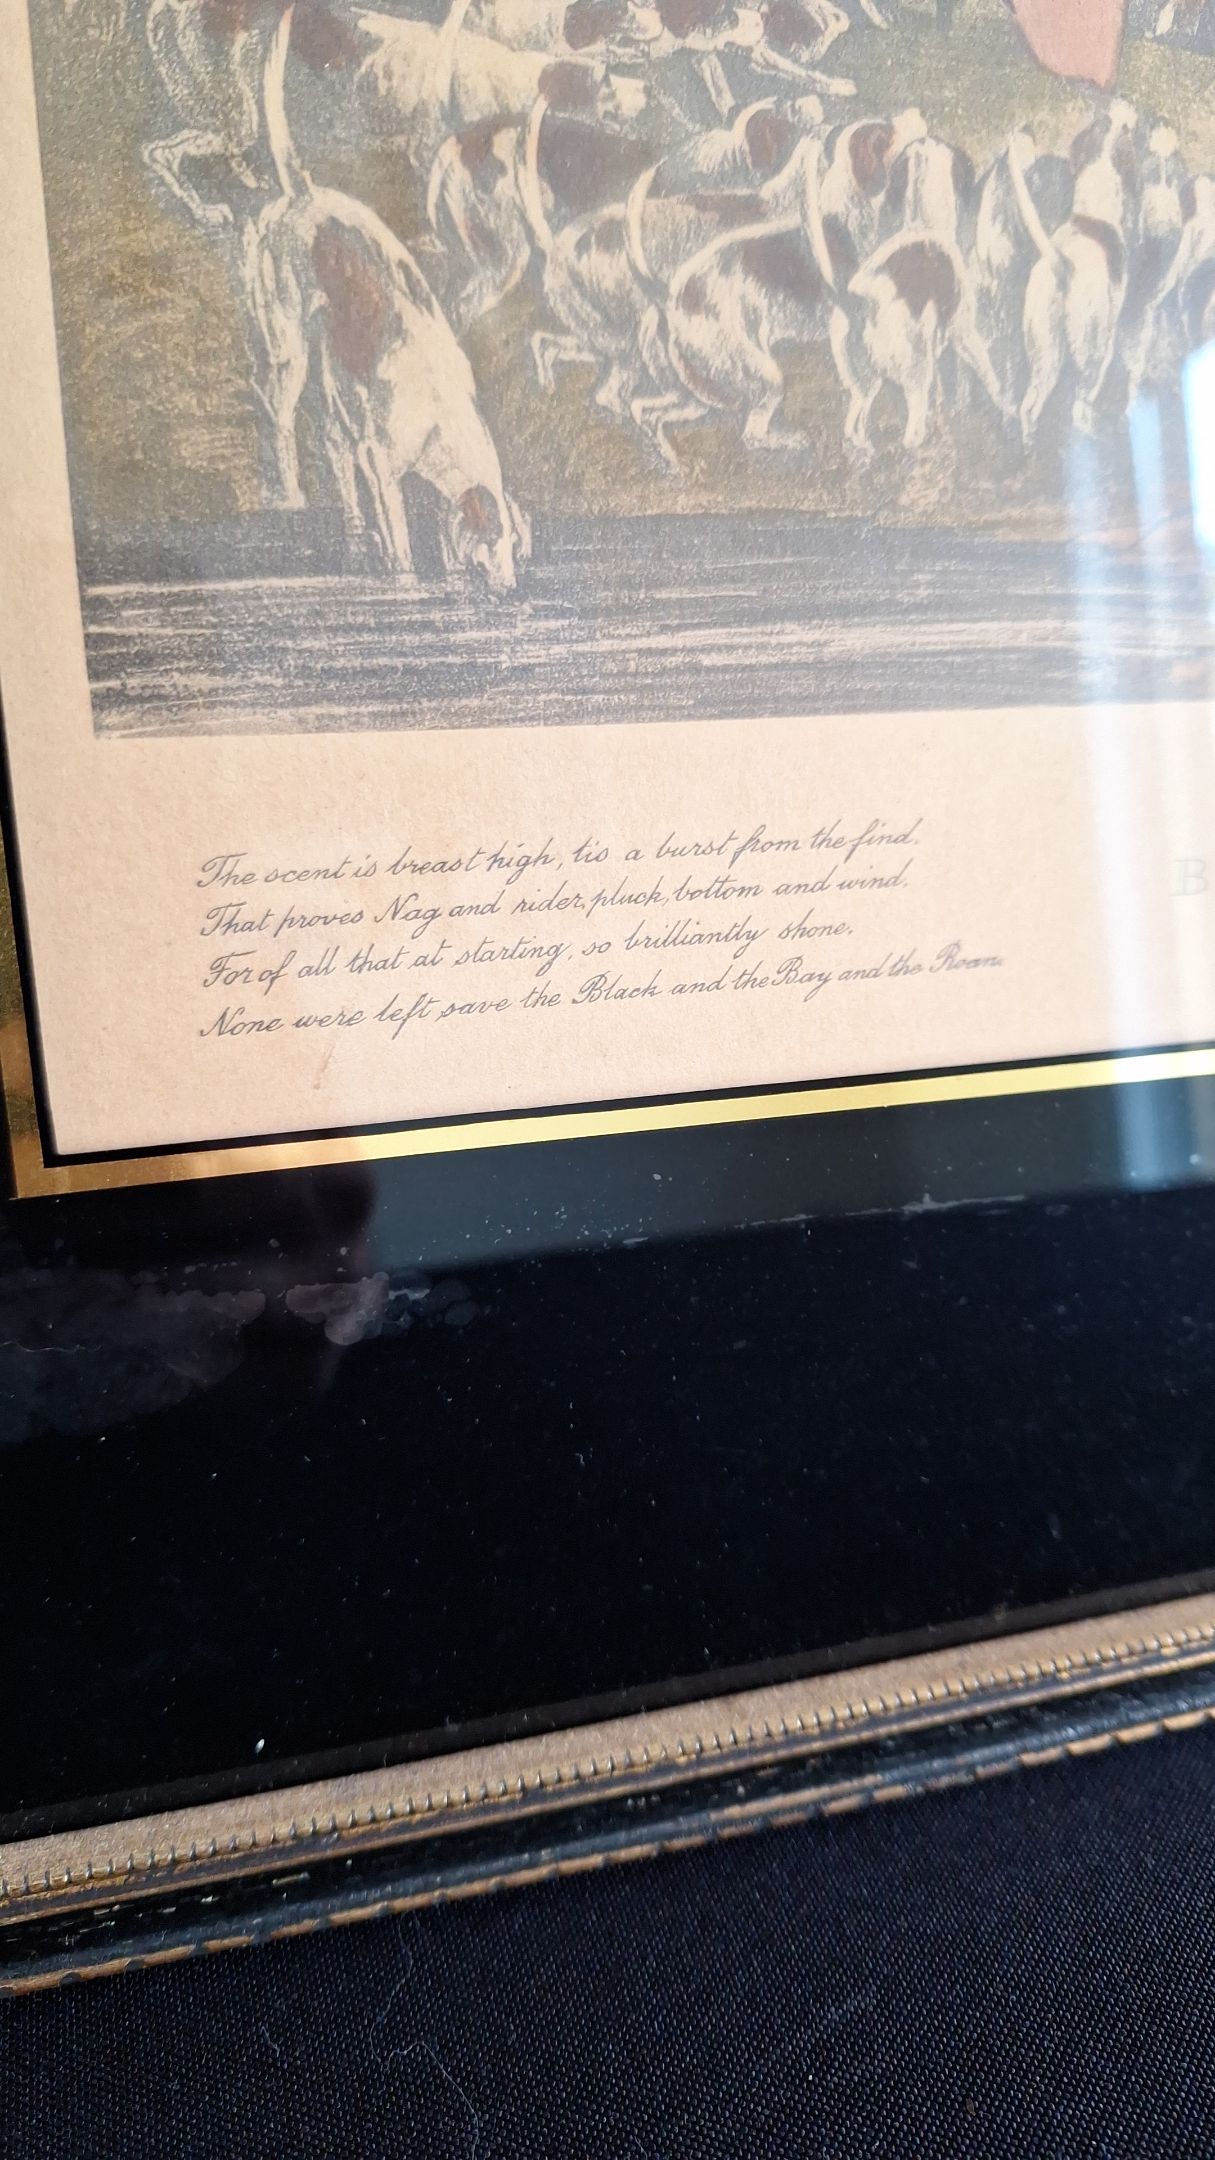 The scent is breast high, tis a burst from the find.
That proves Nag and rider, pluck, bottom and wind.
For of all that at starting, so brilliantly shone.
None were left, save the Black and the Bay and the Roan.
B